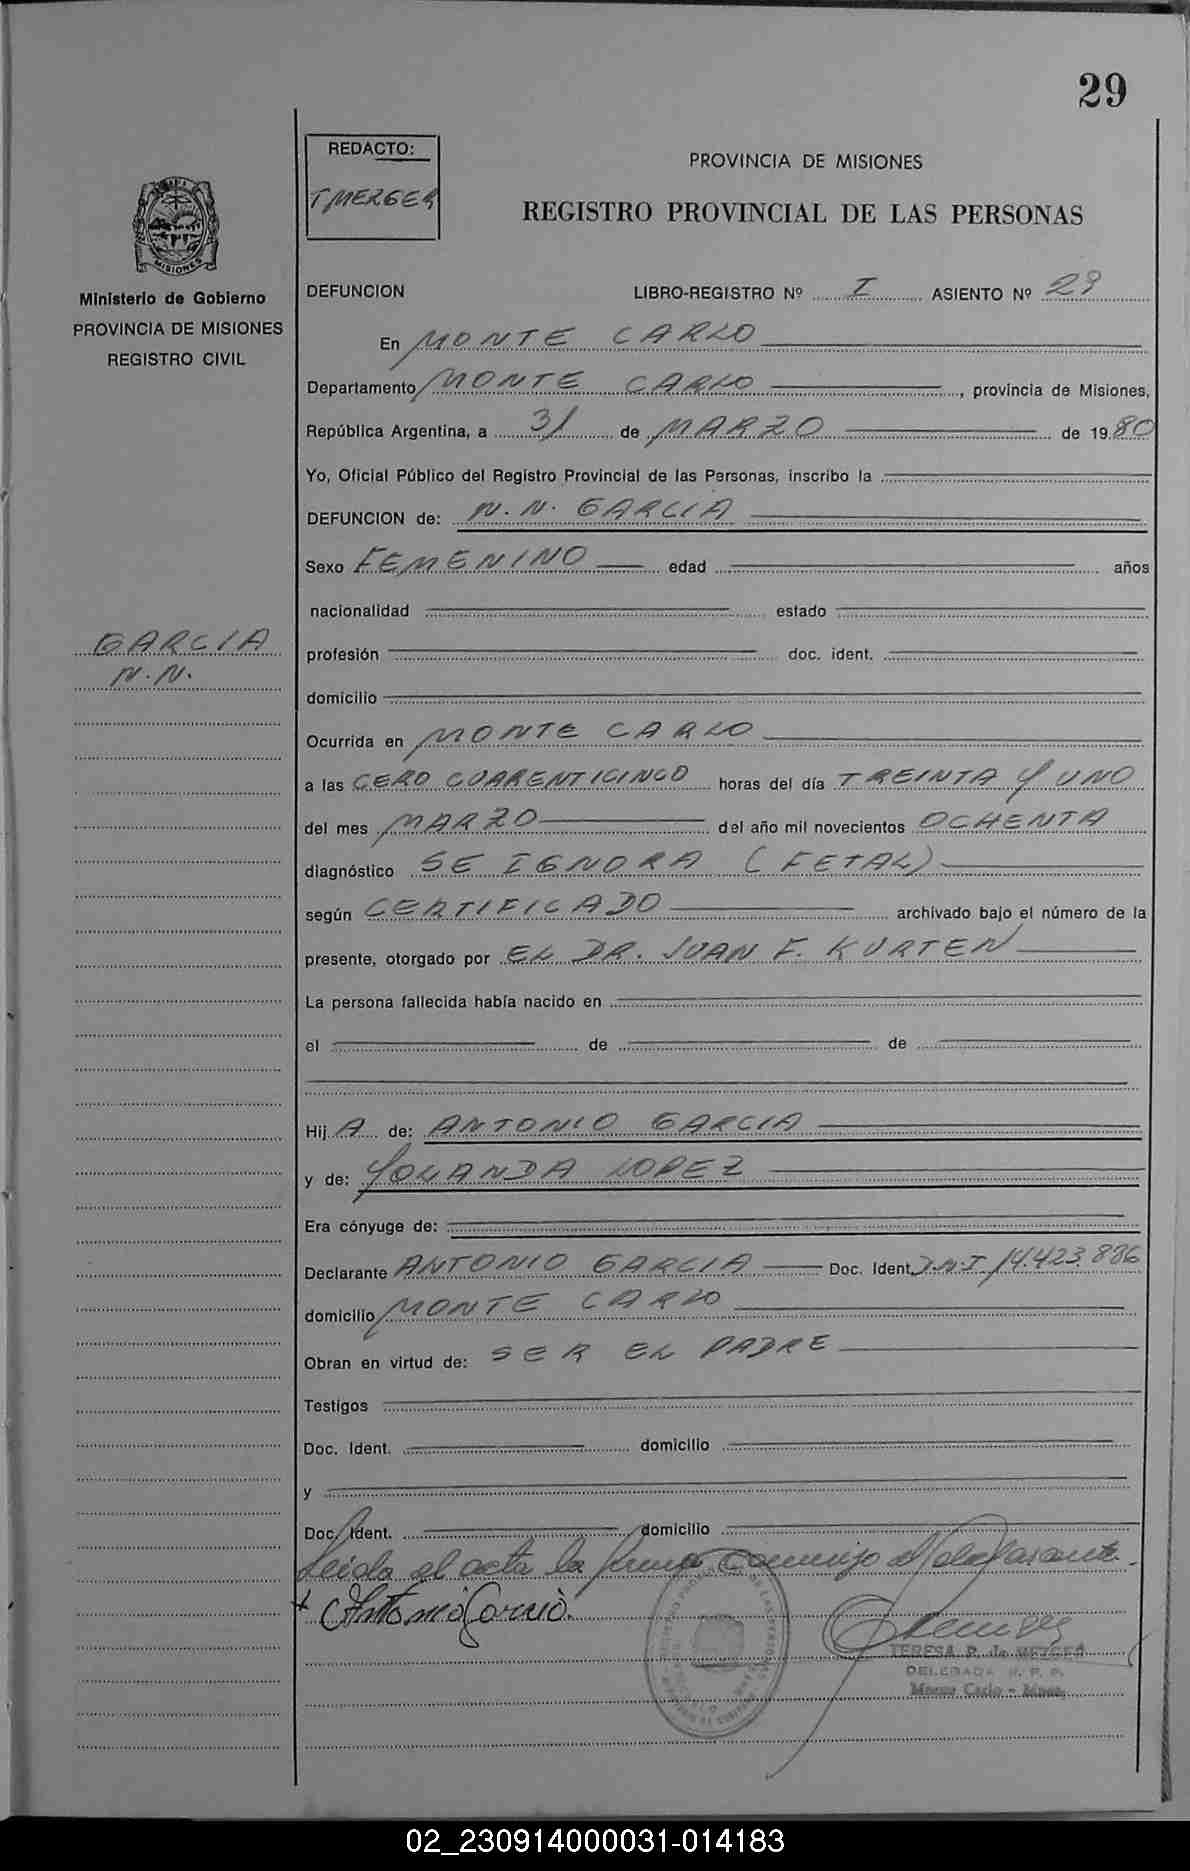 29
REDACTO:
T MERGER
PROVINCIA DE MISIONES
REGISTRO PROVINCIAL DE LAS PERSONAS
MISIONES
Ministerio de Gobierno
PROVINCIA DE MISIONES
REGISTRO CIVIL
GARCIA
N.N.
DEFUNCION LIBRO-REGISTRO Nº I ASIENTO Nº 29
En MONTE CARLO
Departamento MONTE CARLO, provincia de Misiones,
República Argentina, a 31 de MARZO de 1980
Yo, Oficial Público del Registro Provincial de las Personas, inscribo la
DEFUNCION de: N. N. GARCIA
Sexo FEMENINO edad años
nacionalidad estado
profesión doc. ident.
domicilio
Ocurrida en MONTE CARLO
a las CERO CUARENTICINCO horas del día TREINTA Y UNO
del mes MARZO del año mil novecientos OCHENTA
diagnóstico SE IGNORA (FETAL)
según CERTIFICADO archivado bajo el número de la
presente, otorgado por EL DR. JUAN F. KURTEN
La persona fallecida había nacido en
el de de
Hij A de: ANTONIO GARCIA
y de: YOLANDA LOPEZ
Era cónyuge de:
Declarante ANTONIO GARCIA Doc. Ident. D.N.I 14.423.886
domicilio MONTE CARLO
Obran en virtud de: SER EL PADRE
Testigos
Doc. Ident. domicilio
y
Doc. Ident. domicilio
Leida el acta la firma conmigo el declarante.
Antonio Garcia.
TERESA P. de
DELEGADA R. P. P.
Monte Carlo - Mnes.
02_230914000031-014183